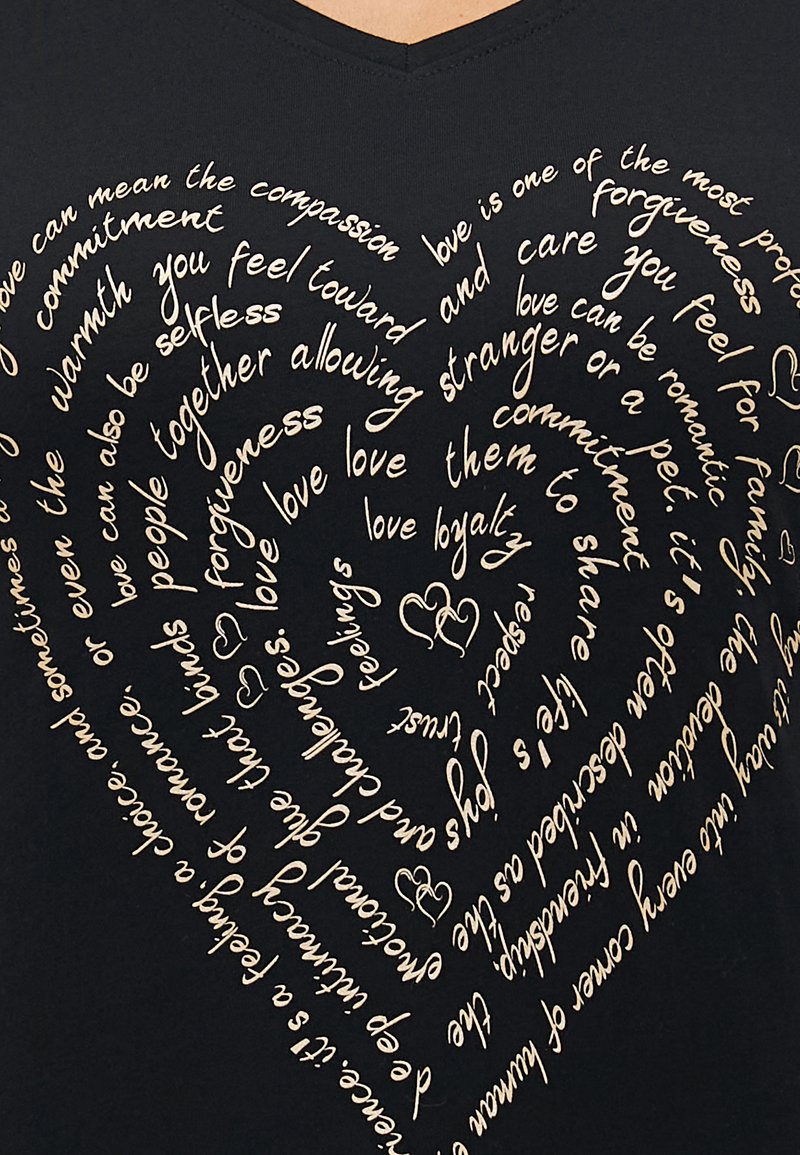 love is one of the most
way into every corner of human
it's a feeling, a choice, and sometimes a
love can mean the compassion
forgiveness
commitment
and care you feel for family, the devotion in friendship, the
deep intimacy of romance, or even the
warmth you feel toward
stranger or a pet. it's often described as the
emotional glue that binds people together allowing
love can be romantic
love can also be selfless
commitment
forgiveness
them to share life's
joys and challenges. love love love
love loyalty
respect
trust
feelings